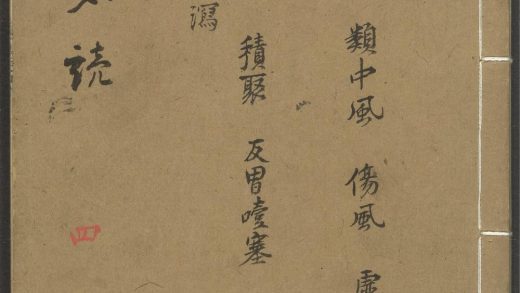 類中風 傷風
積聚 反胃噎塞
瀉
読
四